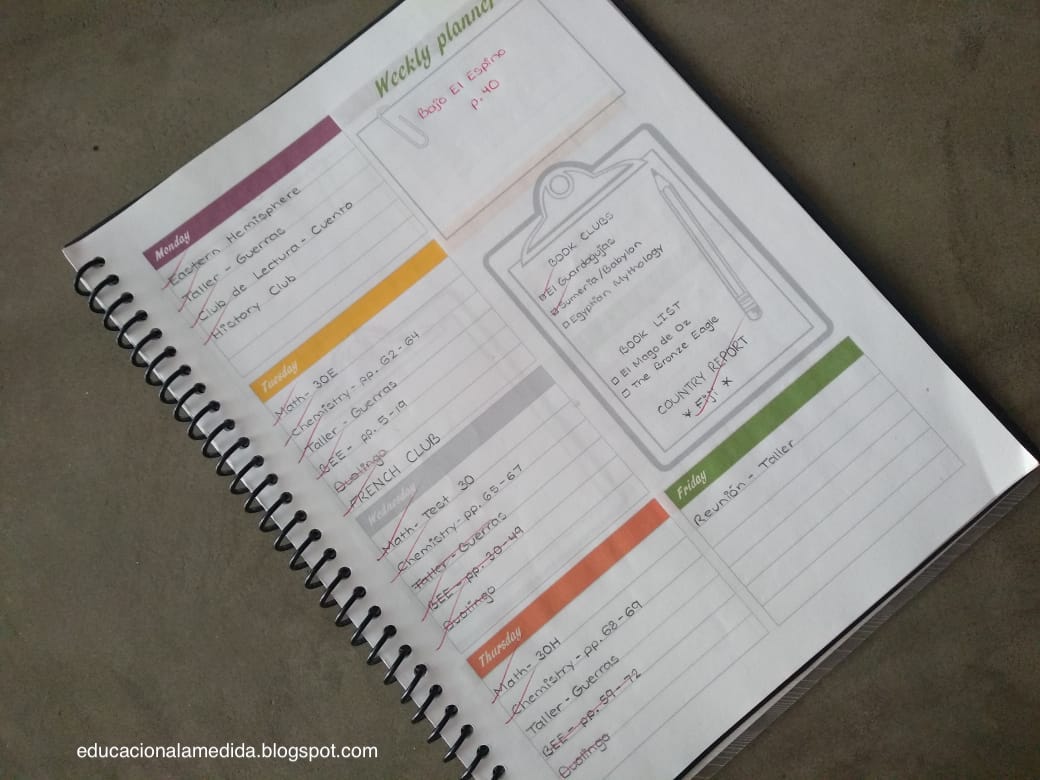 Weekly planner
Bajo El Espino
p. 40
Monday
Eastern Hemisphere
Taller - Guerras
Club de Lectura - Cuento
History Club
Tuesday
Math - 30E
Chemistry - pp. 62-64
Taller - Guerras
BEE - pp. 5-19
Duolingo
FRENCH CLUB
Wednesday
Math - Test 30
Chemistry - pp. 65-67
Taller - Guerras
BEE - pp. 20-49
Duolingo
Thursday
Math - 30H
Chemistry - pp. 68-69
Taller - Guerras
BEE - pp. 59-72
Duolingo
BOOK CLUBS
El Guardagujas
Sumeria/Babylon
Egyptian Mythology
BOOK LIST
El Mago de Oz
The Bronze Eagle
COUNTRY REPORT
* Fiji *
Friday
Reunión - Taller
educacionalamedida.blogspot.com